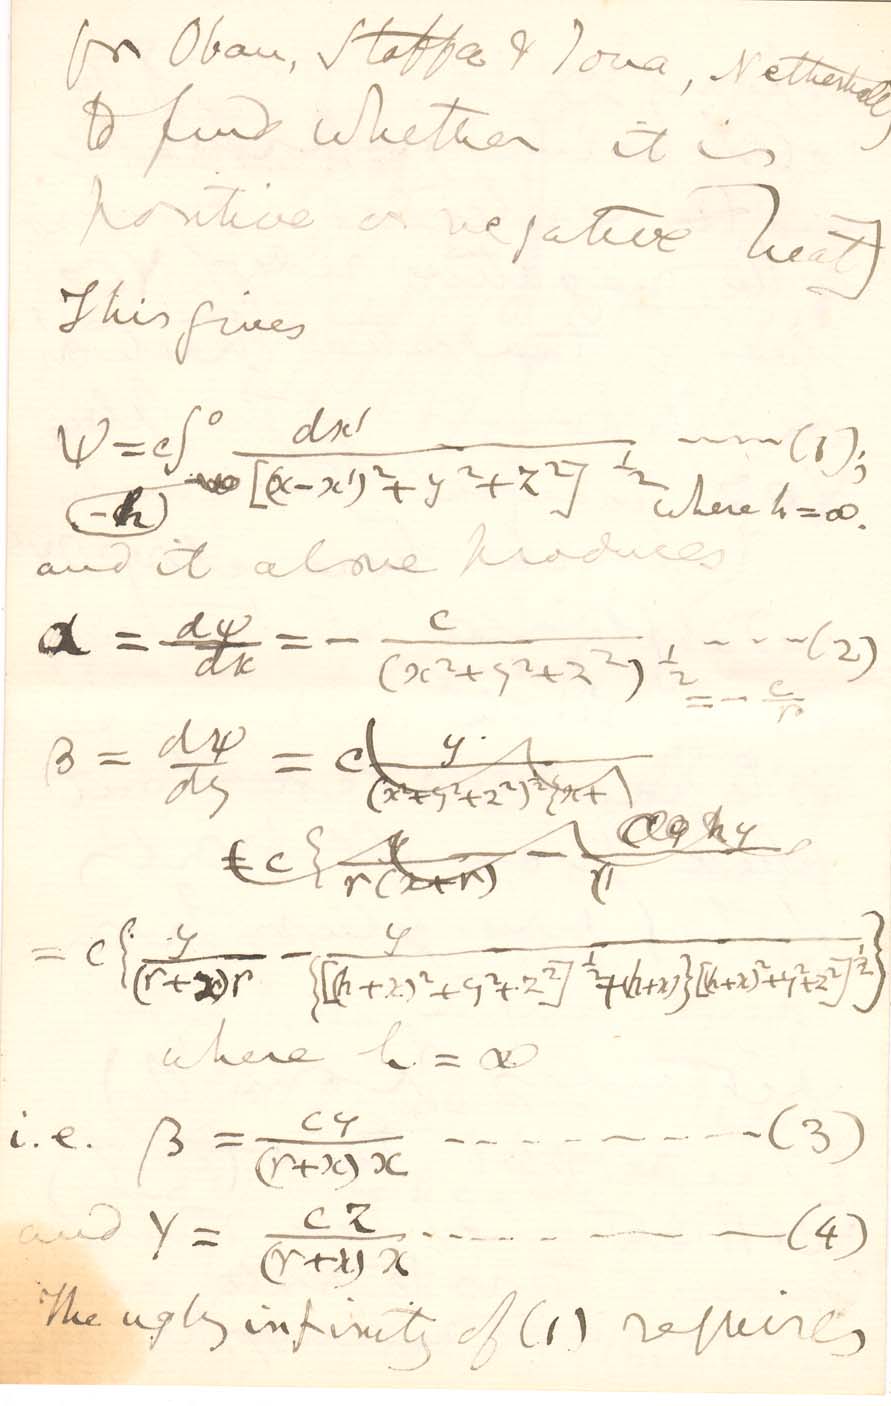 for Oban, Staffa & Iona, Netherhall,
to find whether it is
positive or negative heat]
This gives
ψ = c∫⁰₋ₕ dx′ / [(x-x′)²+y²+z²]^½ ----(1);
where h = ∞.
and it alone produces
α = dψ/dx = - c / (x²+y²+z²)^½ ----(2)
= - c/r
β = dψ/dy = c y / (x²+y²+z²)^½ {x+
= c{ y / r(x+r) -
= c{ y / (r+x)r - y / {[(h+x)²+y²+z²]^½ + (h+x)}[(h+x)²+y²+z²]^½ }
where h = ∞
i.e. β = cy / (r+x) x --------(3)
and γ = cz / (r+x) x --------(4)
The ugly infinity of (1) requires